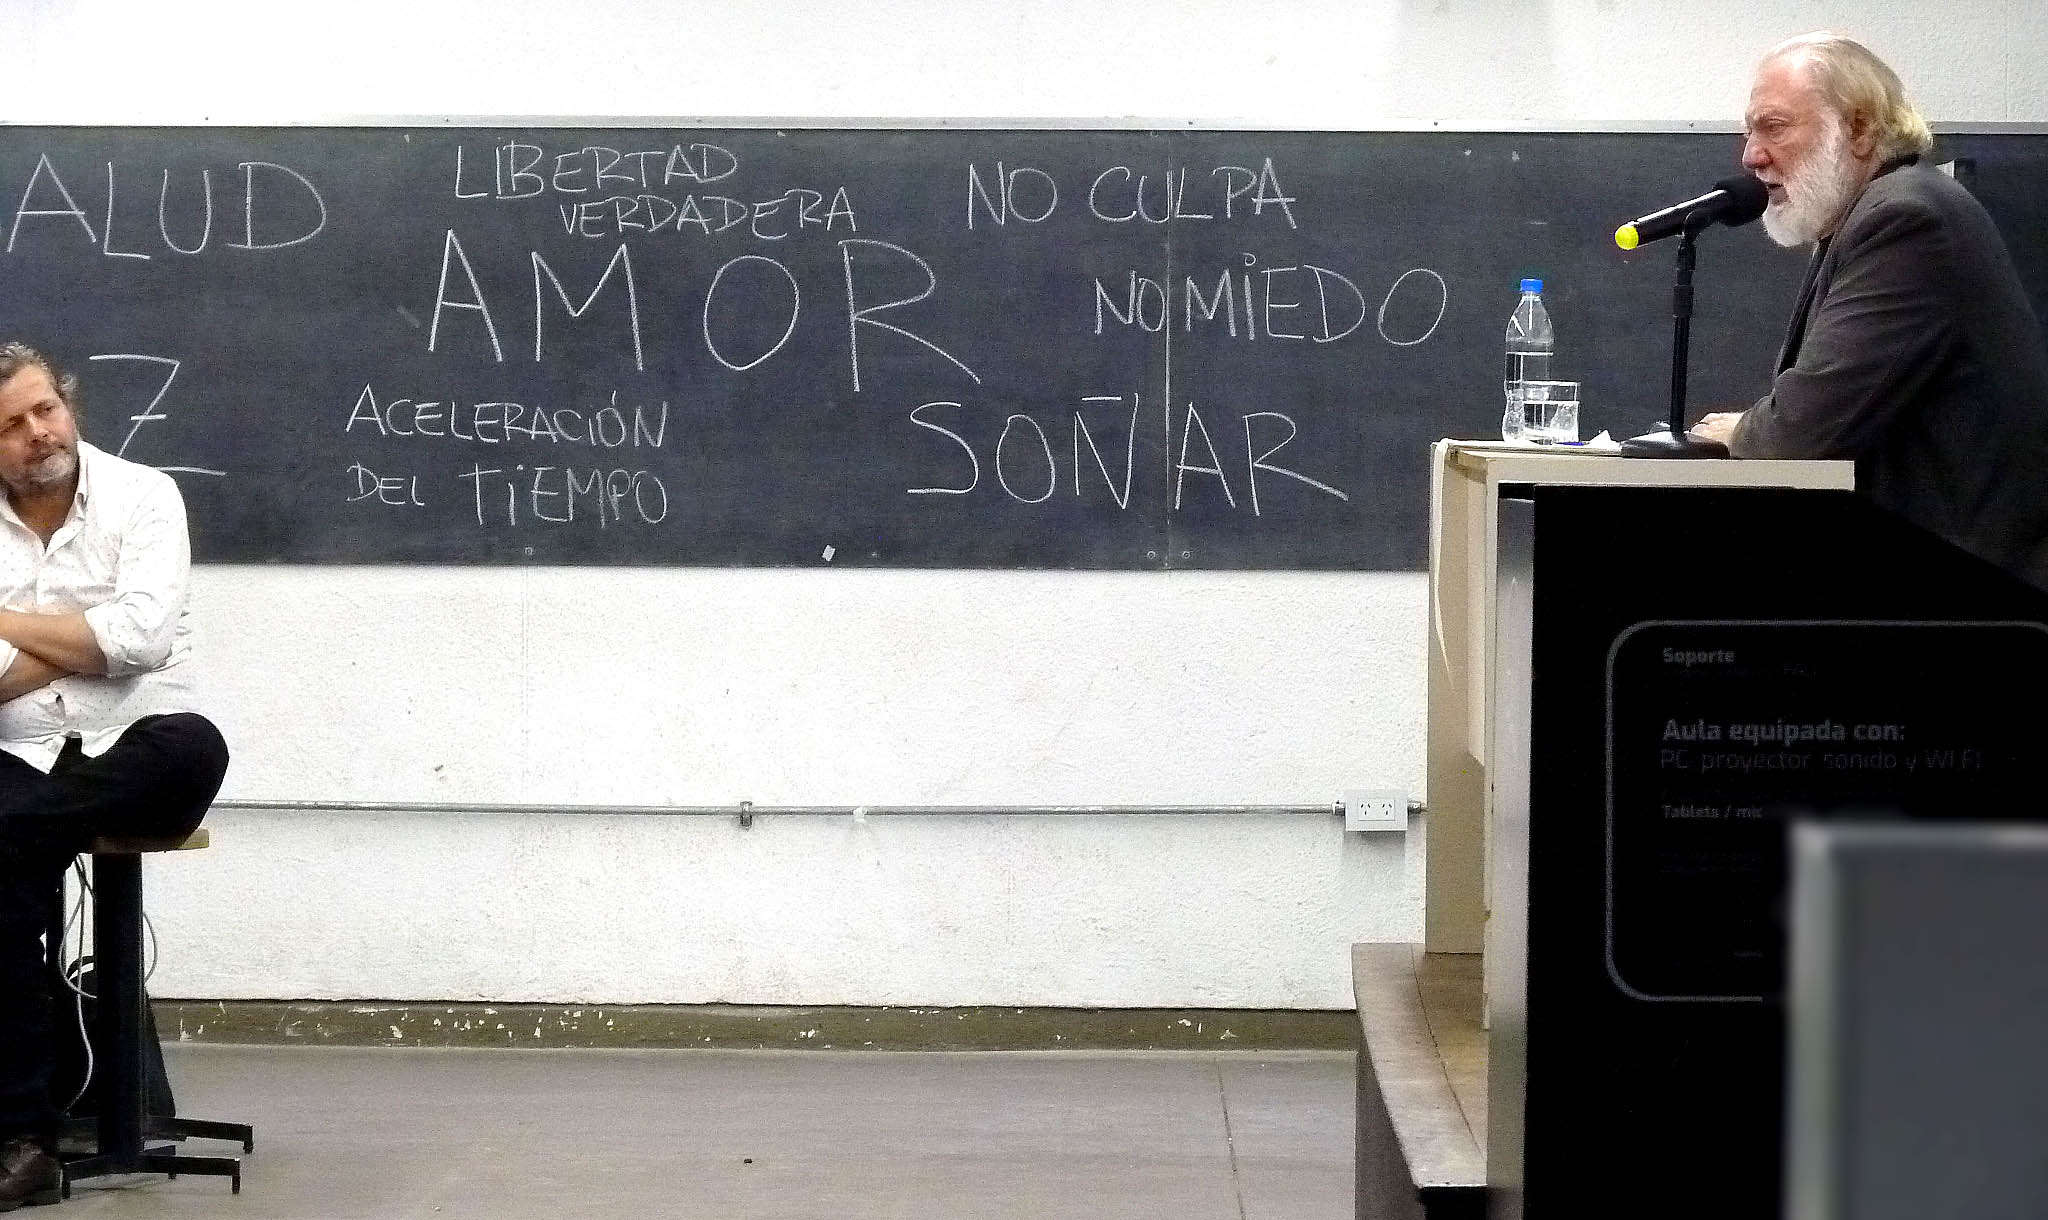 SALUD
LIBERTAD
VERDADERA
NO CULPA
AMOR
NO MIEDO
Z
ACELERACIÓN
DEL TIEMPO
SOÑAR
Soporte
Aula equipada con:
PC proyector sonido y WI FI
Tablets / mic